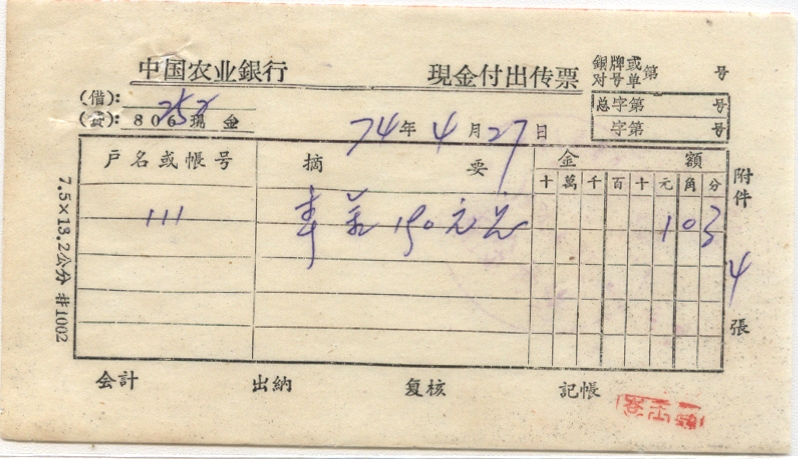 中国农业銀行 現金付出传票 銅牌或对号单第 号
(借): 252 总字第 号
(貸): 806現金 字第 号
74年4月27日
戶名或帳号 摘要 金額
十萬千百十元角分
111 150元 103
附件 4 張
会計 出納 复核 記帳
7.5×13.2公分 井1002